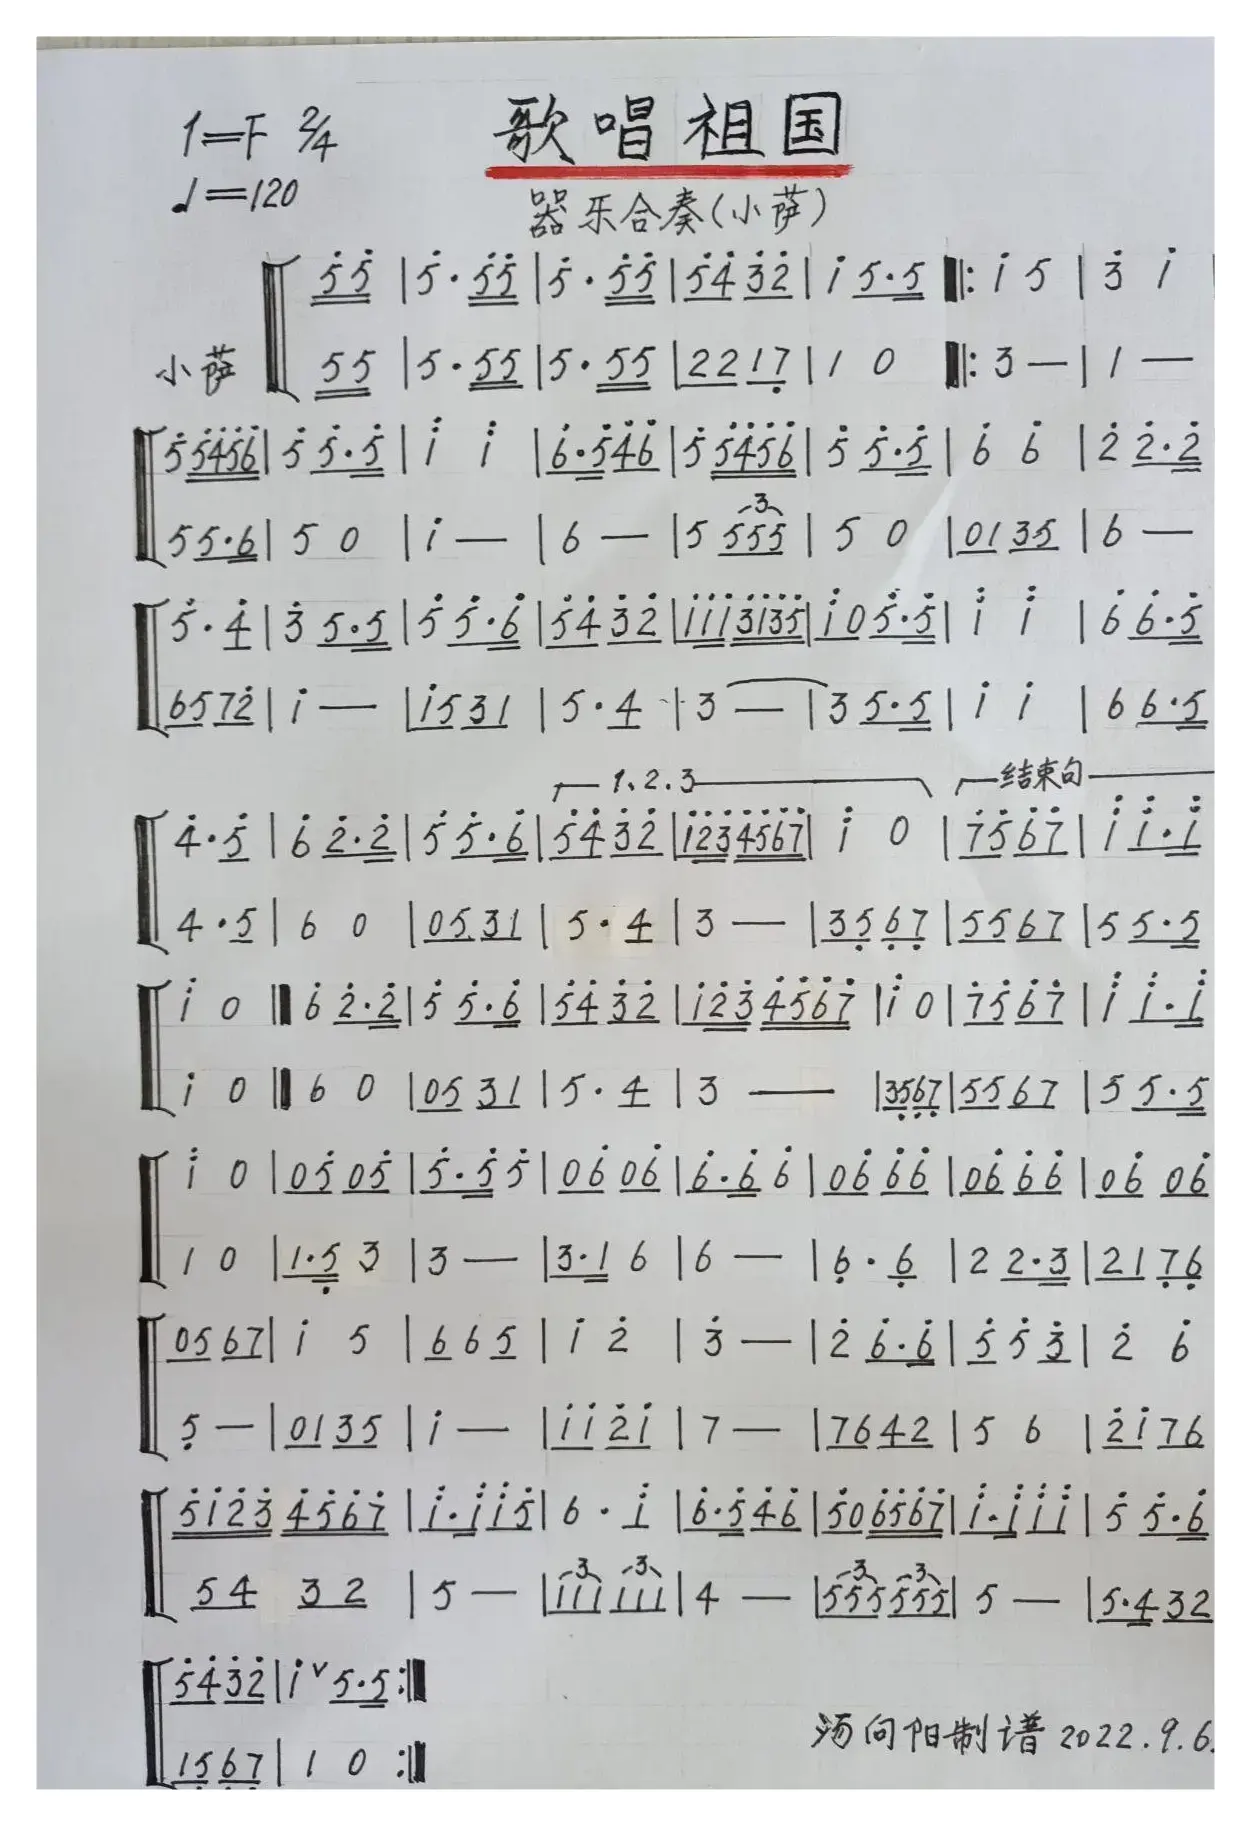 1=F 2/4
歌唱祖国
♩=120
器乐合奏(小萨)
5̇5̇ | 5̇·5̇5̇ | 5̇·5̇5̇ | 5̇4̇3̇2̇ | 1̇ 5·5 ‖: 1̇ 5 | 3̇ 1̇ |
小萨 55 | 5·55 | 5·55 | 2217̣ | 1 0 ‖: 3 — | 1 —
5̇5̇4̇5̇6̇ | 5̇ 5̇·5̇ | 1̈ 1̈ | 6̇·5̇4̇6̇ | 5̇ 5̇4̇5̇6̇ | 5̇ 5̇·5̇ | 6̇ 6̇ | 2̇ 2̇·2̇
55·6 | 5 0 | 1̇ — | 6 — | 5 555 (3) | 5 0 | 0135 | 6 —
5̇·4̇ | 3̇ 5·5 | 5̇ 5̇·6̇ | 5̇4̇3̇2̇ | 1̇1̇1̇3̇1̇3̇5̇ | 1̇0 5̇·5̇ | 1̈ 1̈ | 6̇ 6̇·5̇
6572̇ | 1̇ — | 1̇531 | 5·4 | 3 — | 3 5·5 | 1̇ 1̇ | 6 6·5
1、2.3 结束句
4̇·5̇ | 6̇ 2̇·2̇ | 5̇ 5̇·6̇ | 5̇4̇3̇2̇ | 1̇2̇3̇4̇5̇6̇7̇ | 1̇ 0 | 7̇5̇6̇7̇ | 1̈ 1̈·1̈
4·5 | 6 0 | 0531 | 5·4 | 3 — | 35̣6̣7̣ | 5567 | 5 5·5
1̈ 0 ‖ 6̇ 2̇·2̇ | 5̇ 5̇·6̇ | 5̇4̇3̇2̇ | 1̇2̇3̇4̇5̇6̇7̇ | 1̈ 0 | 7̇5̇6̇7̇ | 1̈ 1̈·1̈
1̇ 0 ‖ 6 0 | 0531 | 5·4 | 3 — | 35̣6̣7̣ | 5567 | 5 5·5
1̈ 0 | 05̇05̇ | 5̇·5̇5̇ | 06̇06̇ | 6̇·6̇6̇ | 06̇6̇6̇ | 06̇6̇6̇ | 06̇ 06̇
1 0 | 1·5̣ 3 | 3 — | 3·1 6 | 6 — | 6̣·6̣ | 2 2·3 | 217̣6̣
0567 | 1̇ 5 | 6 6 5 | 1̇ 2̇ | 3̇ — | 2̇ 6̇·6̇ | 5̇ 5̇ 3̇ | 2̇ 6̇
5̣ — | 0135 | 1̇ — | 1̇1̇2̇1̇ | 7 — | 7642 | 5 6 | 2̇1̇76
5̇1̇2̇3̇ 4̇5̇6̇7̇ | 1̈·1̈1̈5̇ | 6·1̈ | 6̇·5̇4̇6̇ | 5̇06̇5̇6̇7̇ | 1̈·1̈1̈1̈ | 5̇ 5̇·6̇
54 32 | 5 — | 111 (3) 111 (3) | 4 — | 555 (3) 555 (3) | 5 — | 5·432
5̇4̇3̇2̇ | 1̇ ᵛ 5·5 :‖
15̣6̣7̣ | 1 0 :‖
汤向阳制谱 2022.9.6.